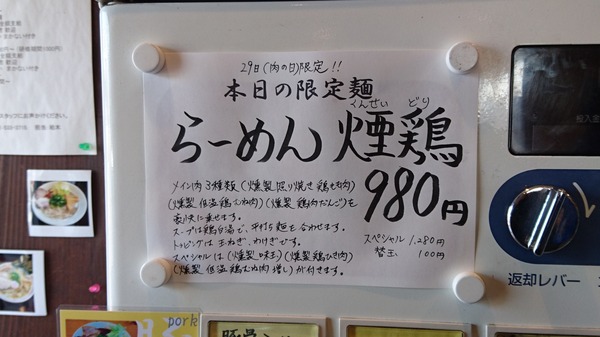 29日(肉の日)限定!!
本日の限定麺
くんせい どり
らーめん 煙鶏
980円
メイン肉3種類(燻製照り焼き鶏もも肉)
(燻製低温鶏むね肉)(燻製鶏肉だんご)を
豪快に乗せます。
スープは鶏白湯で、平打ち麺を合わせます。
トッピングは玉ねぎ、かけぎです。
スペシャルは(燻製味玉)(燻製鶏ひき肉)
(燻製低温鶏むね肉増し)が付きます。
スペシャル 1,280円
替玉 100円
返却レバー
投入金
pork